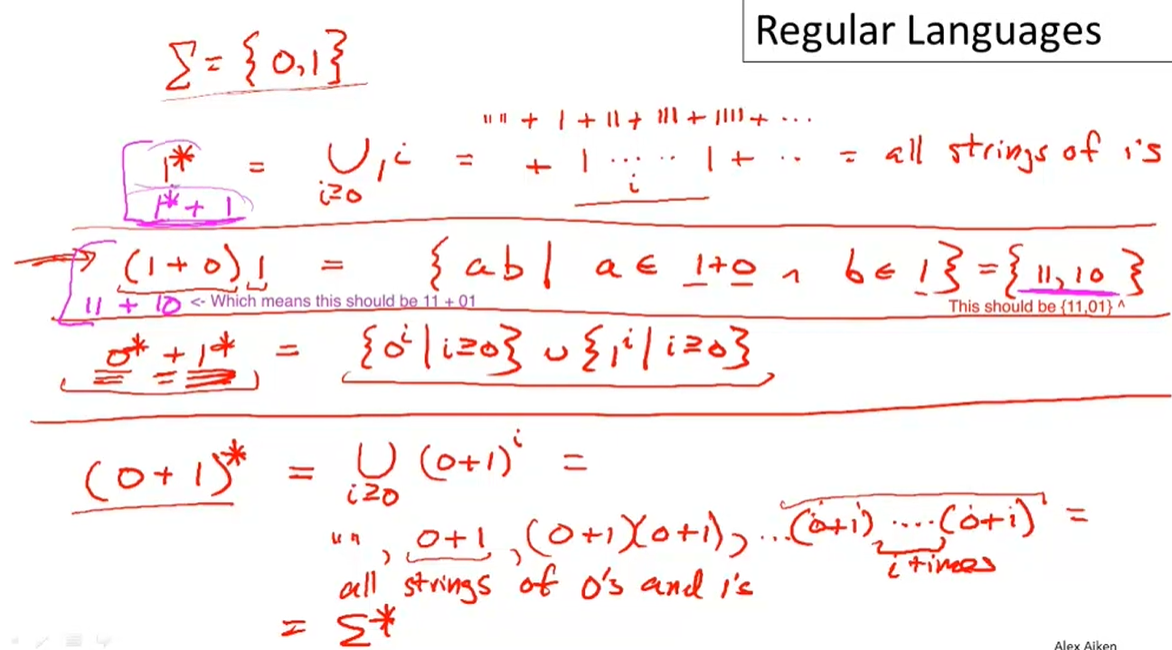 Regular Languages
Σ = {0,1}
"" + 1 + 11 + 111 + 1111 + ...
1* = ⋃ 1^i = + 1 ..... 1 + .. = all strings of 1's
i≥0 i
1* + 1
(1+0)1 = {ab | a ∈ 1+0 ∧ b ∈ 1} = {11, 10}
11 + 10 <- Which means this should be 11 + 01 This should be {11,01} ^
0* + 1* = {0^i | i≥0} ∪ {1^i | i≥0}
(0+1)* = ⋃ (0+1)^i =
i≥0
"", 0+1, (0+1)(0+1), ...(0+1) ....(0+1) =
i times
all strings of 0's and 1's
= Σ*
Alex Aiken